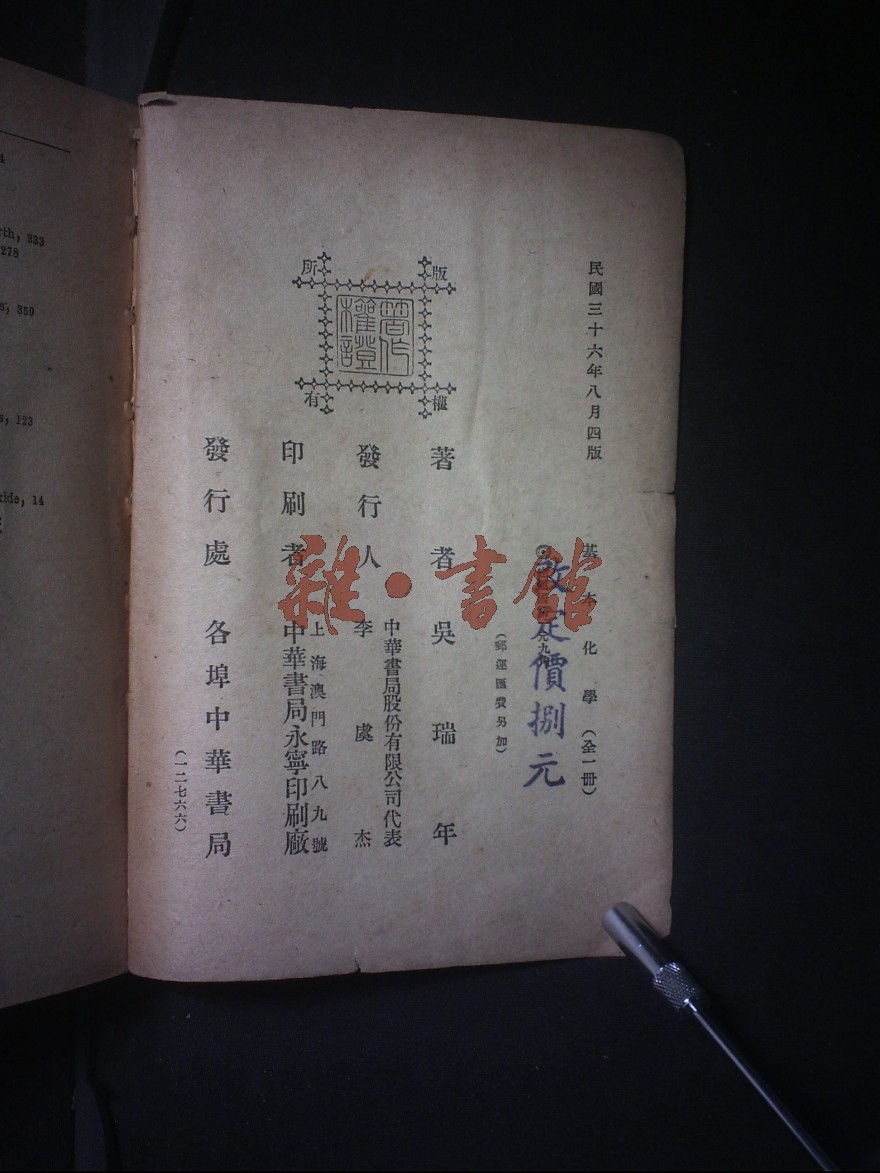 民國三十六年八月四版
基本化學(全一冊)
改定價捌元
(郵運匯費另加)
版權所有
著作權證
著者 吳瑞年
發行人
中華書局股份有限公司代表
李虞杰
印刷者
上海澳門路八九號
中華書局永寧印刷廠
發行處 各埠中華書局
(一二七六六)
雜·書館
rth, 333
278
s, 359
s, 123
xide, 14